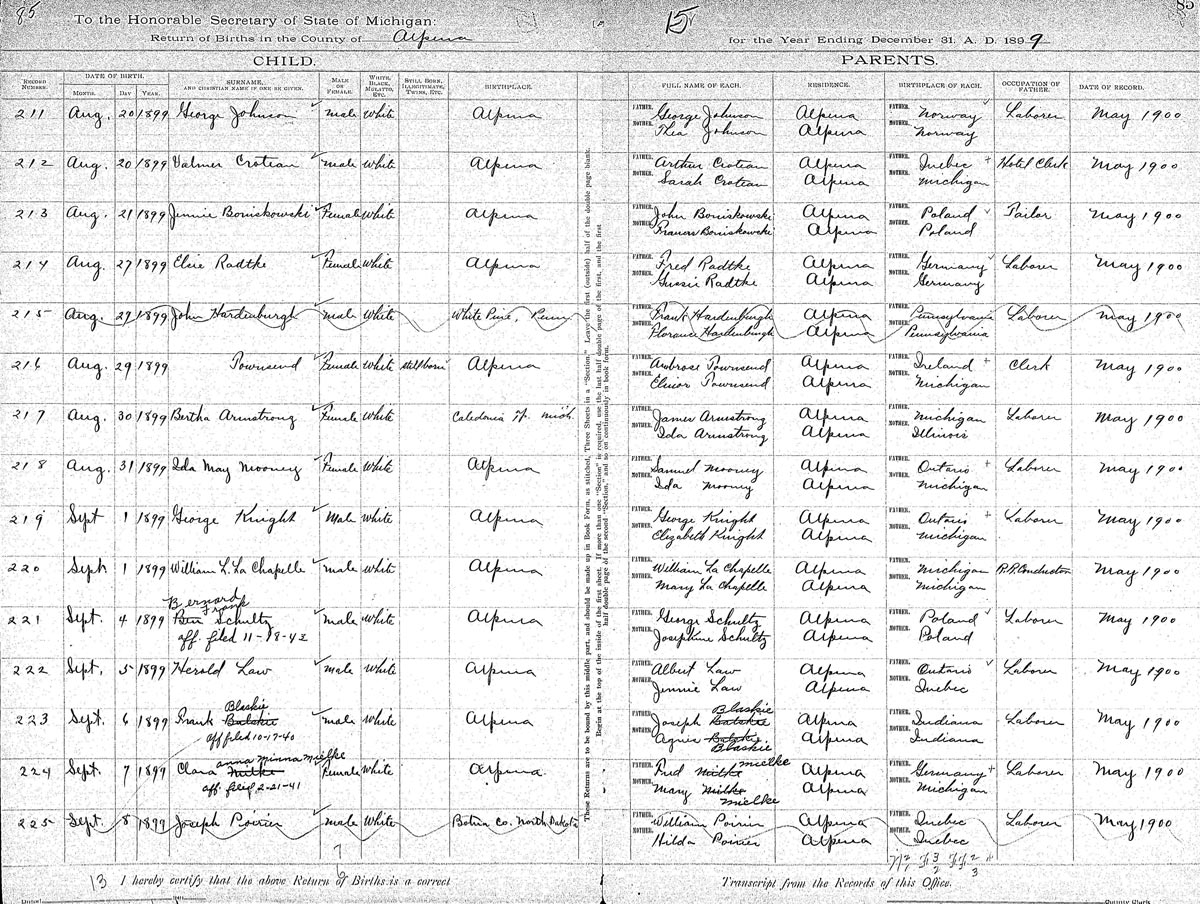 85
To the Honorable Secretary of State of Michigan:
Return of Births in the County of Alpena
15
85
for the Year Ending December 31. A. D. 1899
CHILD.
PARENTS.
RECORD NUMBER.
DATE OF BIRTH.
MONTH. DAY YEAR.
SURNAME, AND CHRISTIAN NAME IF ONE BE GIVEN.
MALE OR FEMALE.
WHITE, BLACK, MULATTO, ETC.
STILL BORN, ILLEGITIMATE, TWINS, ETC.
BIRTHPLACE.
FULL NAME OF EACH.
RESIDENCE.
BIRTHPLACE OF EACH.
OCCUPATION OF FATHER.
DATE OF RECORD.
211 Aug. 20 1899 George Johnson male White Alpena FATHER. George Johnson Alpena FATHER. Norway Laborer May 1900
MOTHER. Thea Johnson Alpena MOTHER. Norway
212 Aug. 20 1899 Valmer Crotian male White Alpena FATHER. Arthur Crotian Alpena FATHER. Quebec Hotel Clerk May 1900
MOTHER. Sarah Crotian Alpena MOTHER. Michigan
213 Aug. 21 1899 Jennie Boniskowski Female White Alpena FATHER. John Boniskowski Alpena FATHER. Poland Tailor May 1900
MOTHER. Frances Boniskowski Alpena MOTHER. Poland
214 Aug. 27 1899 Elsie Radtke Female White Alpena FATHER. Fred Radtke Alpena FATHER. Germany Laborer May 1900
MOTHER. Gussie Radtke Alpena MOTHER. Germany
215 Aug. 29 1899 John Hardenburgh male White White Pine, Penn FATHER. Frank Hardenburgh Alpena FATHER. Pennsylvania Laborer May 1900
MOTHER. Florance Hardenburgh Alpena MOTHER. Pennsylvania
216 Aug. 29 1899 Townsend Female White stillborn Alpena FATHER. Ambrose Townsend Alpena FATHER. Ireland Clerk May 1900
MOTHER. Elinor Townsend Alpena MOTHER. Michigan
217 Aug. 30 1899 Bertha Armstrong Female White Caledonia Tp. Mich. FATHER. James Armstrong Alpena FATHER. Michigan Laborer May 1900
MOTHER. Ida Armstrong Alpena MOTHER. Illinois
218 Aug. 31 1899 Ida May Mooney Female White Alpena FATHER. Samuel Mooney Alpena FATHER. Ontario Laborer May 1900
MOTHER. Ida Mooney Alpena MOTHER. Michigan
219 Sept 1 1899 George Knight Male White Alpena FATHER. George Knight Alpena FATHER. Ontario Laborer May 1900
MOTHER. Elizabeth Knight Alpena MOTHER. Michigan
220 Sept 1 1899 William L. La Chapelle male White Alpena FATHER. William La Chapelle Alpena FATHER. Michigan R.R. Conductor May 1900
MOTHER. Mary La Chapelle Alpena MOTHER. Michigan
Bernard Frank
221 Sept. 4 1899 Ben Schultz male White Alpena FATHER. George Schultz Alpena FATHER. Poland Laborer May 1900
aff. filed 11-18-42 MOTHER. Josephine Schultz Alpena MOTHER. Poland
222 Sept. 5 1899 Herold Law male White Alpena FATHER. Albert Law Alpena FATHER. Ontario Laborer May 1900
MOTHER. Jennie Law Alpena MOTHER. Quebec
Blaskie Blaskie
223 Sept. 6 1899 Frank Balskie male White Alpena FATHER. Joseph Balskie Alpena FATHER. Indiana Laborer May 1900
aff filed 10-17-40 MOTHER. Agnes Balskie Blaskie Alpena MOTHER. Indiana
anna minna mielke
224 Sept. 7 1899 Clara Milke Female White Alpena. FATHER. Fred Milke mielke Alpena FATHER. Germany Laborer May 1900
aff. filed 2-21-41 MOTHER. Mary Milke mielke Alpena MOTHER. Michigan
225 Sept. 8 1899 Joseph Poirier male White Botna Co. North Dakota FATHER. William Poirier Alpena FATHER. Quebec Laborer May 1900
MOTHER. Hilda Poirier Alpena MOTHER. Quebec
These Returns are to be bound by this middle part, and should be made up in Book Form, as stitched, Three Sheets in a "Section." Leave the first (outside) half of the double page blank.
Begin at the top of the inside of the first sheet. If more than one "Section" is required, use the last half double page of the first, and the first
half double page of the second "Section," and so on continuously in book form.
13 I hereby certify that the above Return of Births is a correct
Transcript from the Records of this Office.
County Clerk